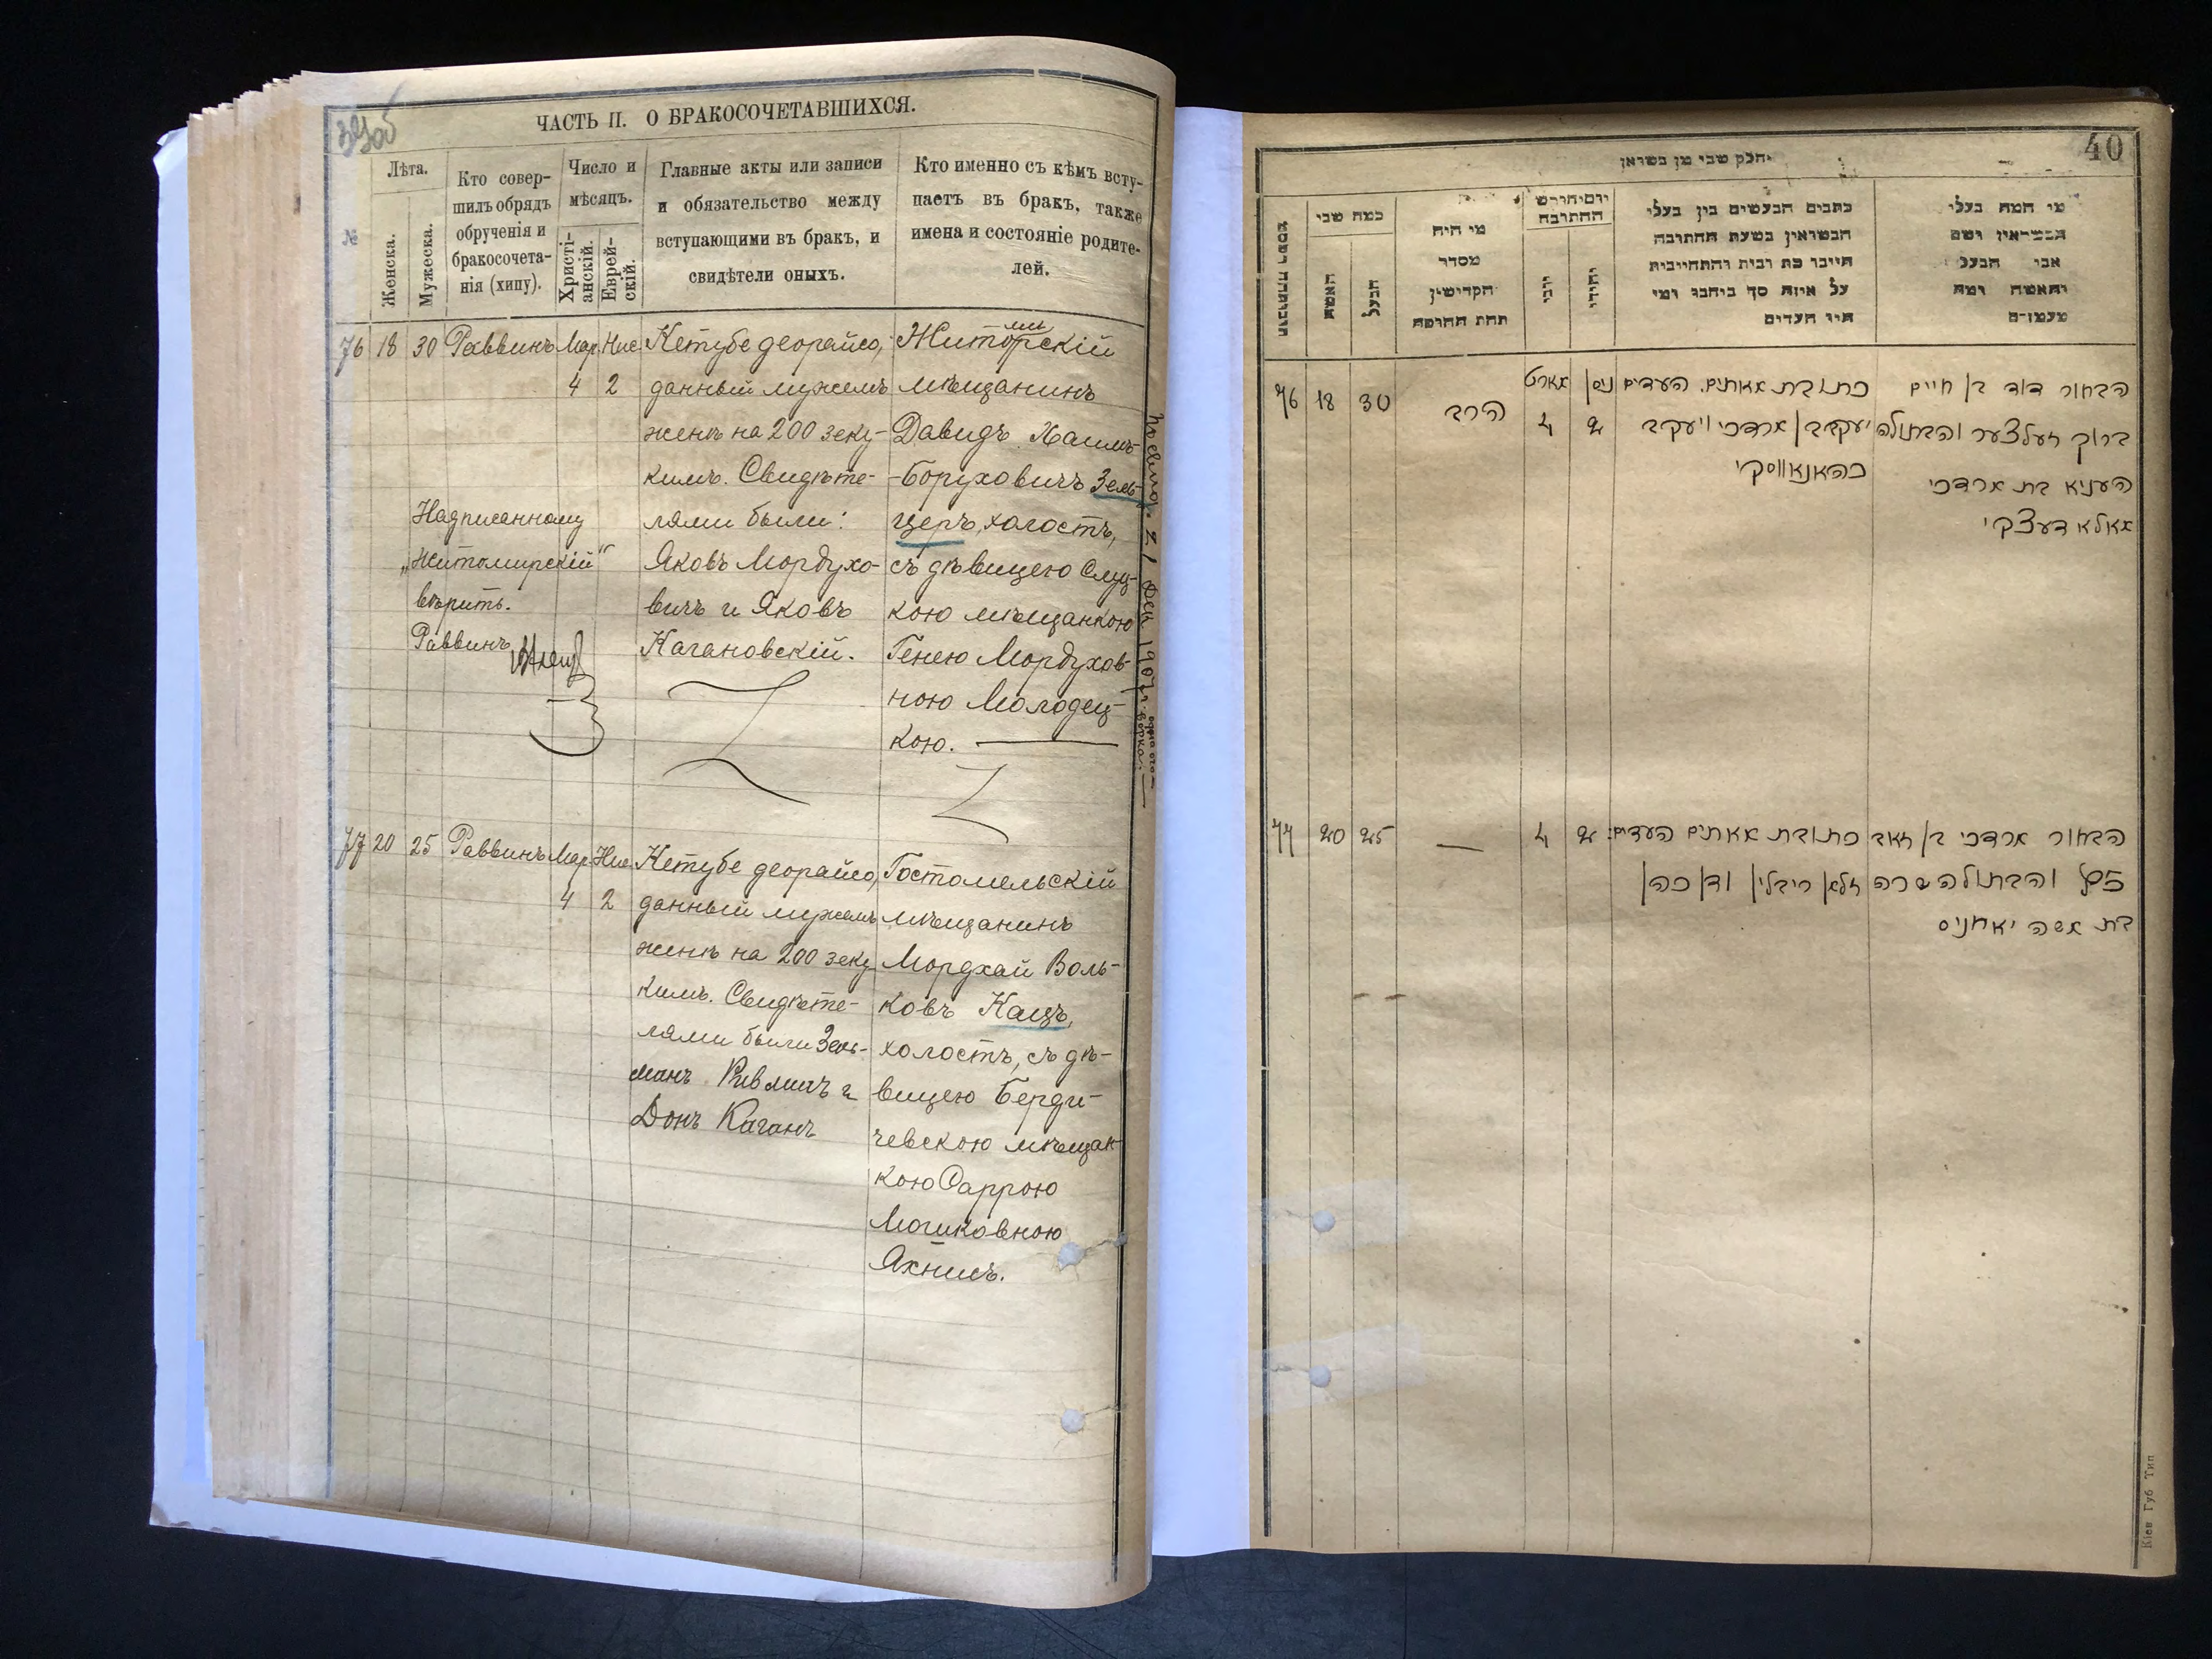 39об
ЧАСТЬ II. О БРАКОСОЧЕТАВШИХСЯ.
№
Лѣта.
Женска.
Мужеска.
Кто совер-
шилъ обрядъ
обрученія и
бракосочета-
нія (хипу).
Число и
мѣсяцъ.
Христі-
анскій.
Еврей-
скій.
Главные акты или записи
и обязательство между
вступающими въ бракъ, и
свидѣтели оныхъ.
Кто именно съ кѣмъ всту-
паетъ въ бракъ, также
имена и состояніе родите-
лей.
76 18 30 Раввинъ Мар. Нис.
4 2
Кетубе деорайсо,
данный мужемъ
женѣ на 200 зеку-
кимъ. Свидѣте-
лями были:
Яковъ Мордухо-
вичъ и Яковъ
Кагановскій.
Житомирскій
мѣщанинъ
Давидъ Хаимъ-
-Боруховичъ Зель-
церъ, холостъ,
съ дѣвицею Слуц-
кою мѣщанкою
Генею Мордухов-
ною Молодец-
кою.
Надписанному
„Житомирскій“
вѣрить.
Раввинъ
77 20 25 Раввинъ Мар. Нис.
4 2
Кетубе деорайсо,
данный мужемъ
женѣ на 200 зеку
кимъ. Свидѣте-
лями были Зель-
манъ Ривлинъ и
Донъ Каганъ
Гостомельскій
мѣщанинъ
Мордхай Воль-
ковъ Кацъ,
холостъ, съ дѣ-
вицею Берди-
чевскою мѣщан-
кою Саррою
Мошковною
Яхнисъ.
40
חלק שני מן נשואין
כמה שני
האשה
הבעל
מי היה
מסדר
הקדושין
תחת החופה
החתונה
יהודי
כתבים הנעשים בין בעלי
הנשואין בשעת החתונה
על איזה סך ניתנו ומי
היו העדים
מי המה בעלי
הנשואין ושם
אבי הבעל
והאשה ומה
מעמדם
76 18 30
הרב
מארט
4
ניסן
2
כתובת מאתים. העדים
יעקב בן מרדכי ויעקב
כהאנאווסקי
הבחור דוד בן חיים
ברוך זעלצער והבתולה
העניא בת מרדכי
מאלאדעצקי
77 20 25
—
4 2
כתובת מאתים העדים:
זלמן ריבלין ודן כהן
הבחור מרדכי בן זאב
כץ והבתולה שרה
בת משה יאחניס
Кіев Губ Тип